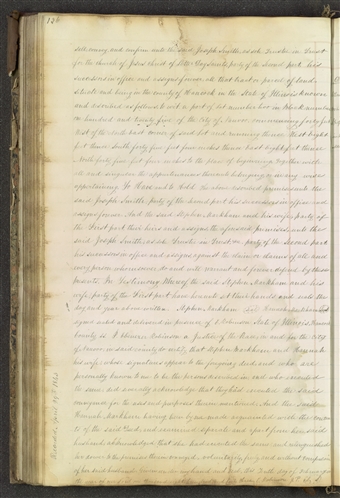 136
sell convey and confirm unto the said Joseph Smith, as sole Trustee in Trust
for the church of Jesus Christ of Latter Day Saints party of the second part his
successors in office and assigns forever all that tract or parcel of land
situate and being in the county of Hancock in the State of Illinois known
and described as follows to wit a part of lot number two in block number
one hundred and twenty five of the City of Nauvoo, commencing forty feet
West of the south East corner of said lot and running thence West eight
feet thence North forty five feet five inches thence East eight feet thence
South forty five feet five inches to the place of beginning Together with
all and singular the appurtenances thereunto belonging or in any wise
appertaining To Have and to Hold the above described premises unto the
said Joseph Smith party of the second part his successors in office and
assigns forever And the said Stephen Markham and his wife party of
the First part their heirs and assigns the aforesaid premises unto the
said Joseph Smith, as sole Trustee in Trust party of the second part
his successors in office and assigns against the claim or claims of all and
every person whomsoever do and will warrant and forever defend by these
presents In Testimony Whereof the said Stephen Markham and his
wife party of the First part have hereunto set their hands and seals the
day and year above written. Stephen Markham Hannah Markham
signed sealed and delivered in presence of E Robinson State of Illinois Hancock
County ss I Ebenezer Robinson a Justice of the Peace in and for the City
of Nauvoo, in said county do certify that Stephen Markham, and Hannah
his wife, whose signatures appear to the foregoing deed and who are
personally known to me to be the persons described in and who executed
the same did severally acknowledge that they had executed the said
conveyance for the uses and purposes therein mentioned. And the said
Hannah Markham having been by me made acquainted with the contents
of the said deed and examined separate and apart from her said
husband acknowledged that she had executed the same and relinquished
her dower to the premises therein conveyed, voluntarily freely and without compulsion
of her said husband
Recorded